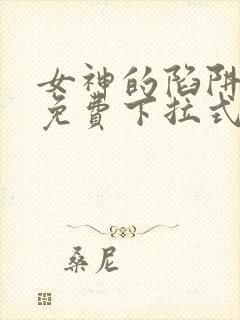 女神的陷阱
免費下拉式
桑尼